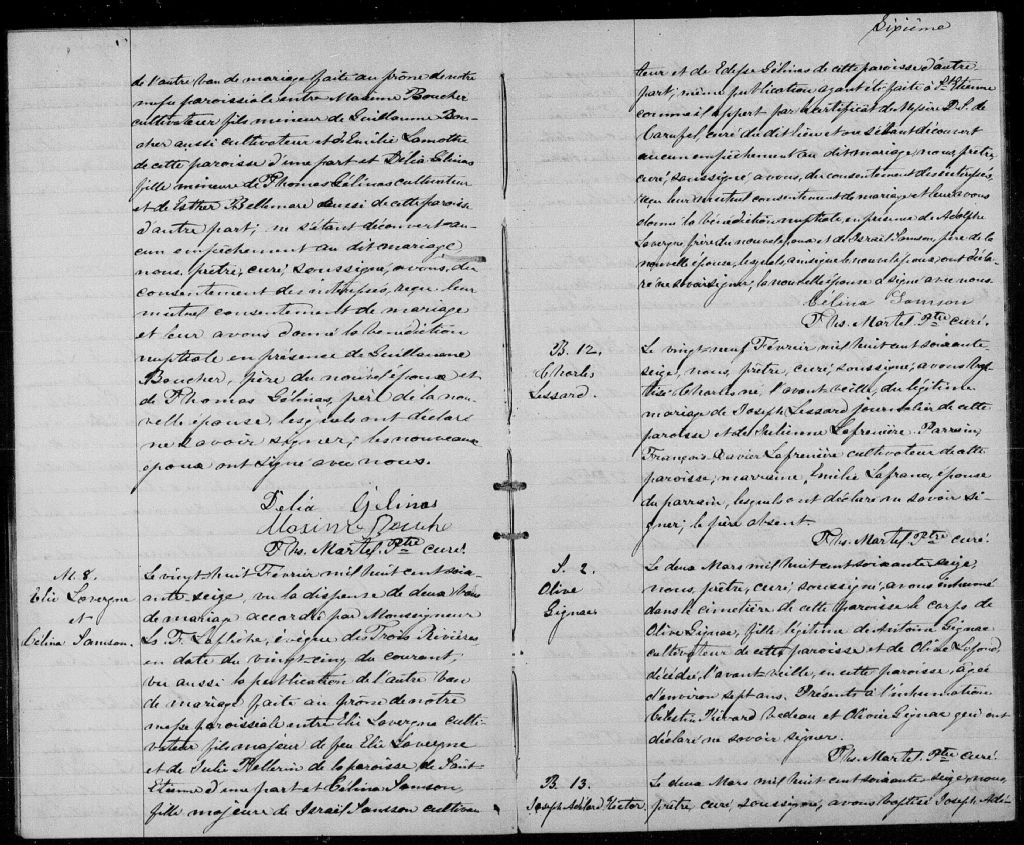 de l'autre ban de mariage faite au prône de notre
messe paroissiale entre Maxime Boucher
cultivateur fils mineur de Guillaume Bou-
cher aussi cultivateur et d'Emilie Lamothe
de cette paroisse d'une part et Délia Gélinas
fille mineure de Thomas Gélinas cultivateur
et de Esther Bellemare aussi de cette parois-
d'autre part; ne s'étant découvert au-
cun empêchement au dit mariage
nous, prêtre, curé, soussigné, avons, du
consentement des intéressés, reçu leur
mutuel consentement de mariage
et leur avons donné la bénédiction
nuptiale en présence de Guillaume
Boucher, père du nouvel époux et
de Thomas Gélinas, père de la nou-
velle épouse, lesquels ont déclaré
ne savoir signer; les nouveaux
époux ont signé avec nous.
Délia Gélinas
Maxime Bouche
Ths. Martel Ptre curé.
M. 8.
Elie Lavergne
et
Célina Samson.
Le vingt-huit Février mil huit cent soix-
ante-seize, vu la dispense de deux bans
de mariage accordée par Monseigneur
Ls. Fr. Laflèche, évêque des Trois Rivières
en date du vingt-cinq du courant;
vu aussi la publication de l'autre ban
de mariage faite au prône de notre
messe paroissiale entre Elie Lavergne culti-
vateur fils majeur de feu Elie Lavergne
et de Julie Pellerin de la paroisse de Saint-
Etienne d'une part et Célina Samson,
fille majeure de Israël Samson cultiva-
Sixième
teur et de Edesse Gélinas de cette paroisse d'autre
part; même publication ayant été faite à St. Etienne
comme il appert par certificat de Messire D. S. de
Carufel, curé du dit lieu et ne s'étant découvert
aucun empêchement au dit mariage, nous, prêtre,
curé, soussigné avons, du consentement des intéressés,
reçu leur mutuel consentement de mariage et leur avons
donné la bénédiction nuptiale en présence de Adolphe
Lavergne, frère du nouvel époux et de Israël Samson, père de la
nouvelle épouse, lesquels, ainsi que le nouvel époux, ont décla-
ré ne savoir signer, la nouvelle épouse a signé avec nous.
Célina Samson
Ths. Martel Ptre curé.
B. 12.
Charles
Lessard.
Le vingt-neuf Février mil huit cent soixante
seize, nous, prêtre, curé, soussigné, avons bap-
tisé Charles né l'avant-veille, du légitime
mariage de Joseph Lessard journalier de cette
paroisse et de Julienne Lafrenière. Parrain,
François Xavier Lafrenière cultivateur de cette
paroisse, marraine, Emilie Lafrance, épouse
du parrain, lesquels ont déclaré ne savoir si-
gner; le père absent.
Ths. Martel Ptre curé.
S. 2.
Olive
Gignac
Le deux Mars mil huit cent soixante seize,
nous, prêtre, curé, soussigné, avons inhumé
dans le cimetière de cette paroisse le corps de
Olive Gignac, fille légitime de Antoine Gignac
cultivateur de cette paroisse et de Olive Lafond,
décédée, l'avant-veille, en cette paroisse, agée
d'environ sept ans. Présents à l'inhumation
Célestin Rivard bedeau et Olivier Gignac qui ont
déclaré ne savoir signer.
Ths. Martel Ptre curé.
B. 13.
Joseph Adélard Hector,
Le deux Mars mil huit cent soixante-seize, nous,
prêtre, curé, soussigné, avons baptisé Joseph Adé-